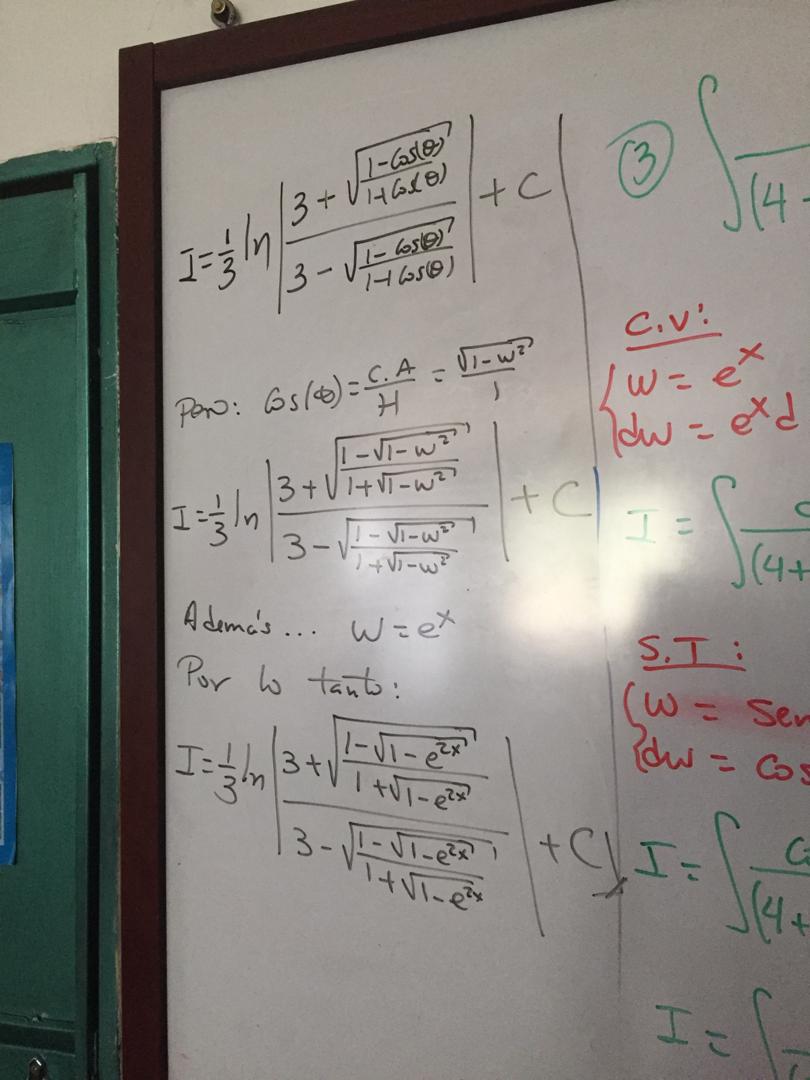 I = 1/3 ln | (3 + √((1-Cos(θ))/(1+Cos(θ)))) / (3 - √((1-Cos(θ))/(1+Cos(θ)))) | + C
Pero: Cos(θ) = C.A/H = √(1-w²)/1
I = 1/3 ln | (3 + √((1-√(1-w²))/(1+√(1-w²)))) / (3 - √((1-√(1-w²))/(1+√(1-w²)))) | + C
Además... w = e^x
Por lo tanto:
I = 1/3 ln | (3 + √((1-√(1-e^2x))/(1+√(1-e^2x)))) / (3 - √((1-√(1-e^2x))/(1+√(1-e^2x)))) | + C
③ ∫ /(4-
C.V:
w = e^x
dw = e^x d
I = ∫ /(4+
S.I:
w = Sen
dw = Cos
I = ∫ C /(4+
I = ∫